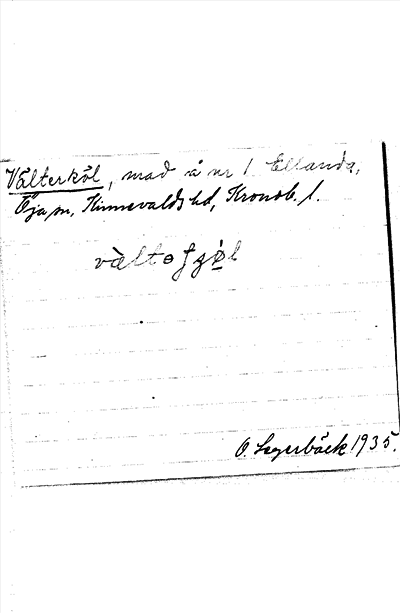 Välterköl, mad å nr 1 Ellanda,
Öja sn, Kinnevalds hd, Kronob. l.
vàltɵʃɡö̀l
O. Segerbäck 1935.